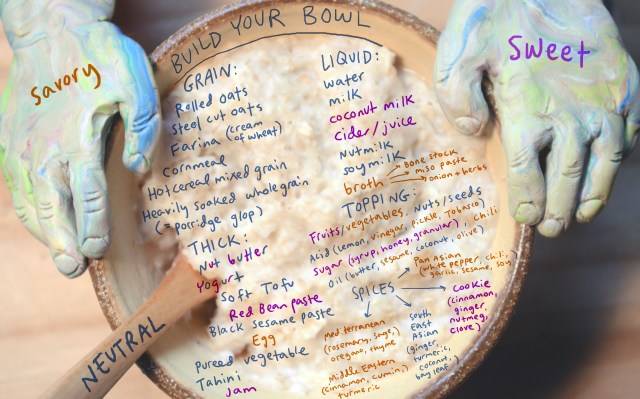 BUILD YOUR BOWL
Savory
Sweet
NEUTRAL
GRAIN:
Rolled oats
Steel cut oats
Farina (cream
of wheat)
Cornmeal
Hot cereal mixed grain
Heavily soaked whole grain
(= porridge glop)
THICK:
Nut butter
Yogurt
Soft Tofu
Red Bean paste
Black sesame paste
Egg
Pureed vegetable
Tahini
jam
LIQUID:
water
milk
coconut milk
cider/juice
Nutmilk
soymilk
broth
bone stock
miso paste
onion + herbs
TOPPING:
Fruits/vegetables, Nuts/seeds
Acid (lemon, vinegar, pickle, Tobasio)
Sugar (syrup, honey, granular), chili
Oil (butter, sesame, coconut, olive)
SPICES
Pan Asian
(white pepper, chili,
garlic, sesame, soy)
Cookie
(cinnamon,
ginger,
nutmeg,
clove)
South
East
Asian
(ginger,
turmeric,
coconut,
bay leaf)
Mediterranean
(rosemary, sage,
oregano, thyme
Middle Eastern
(cinnamon, cumin,
turmeric